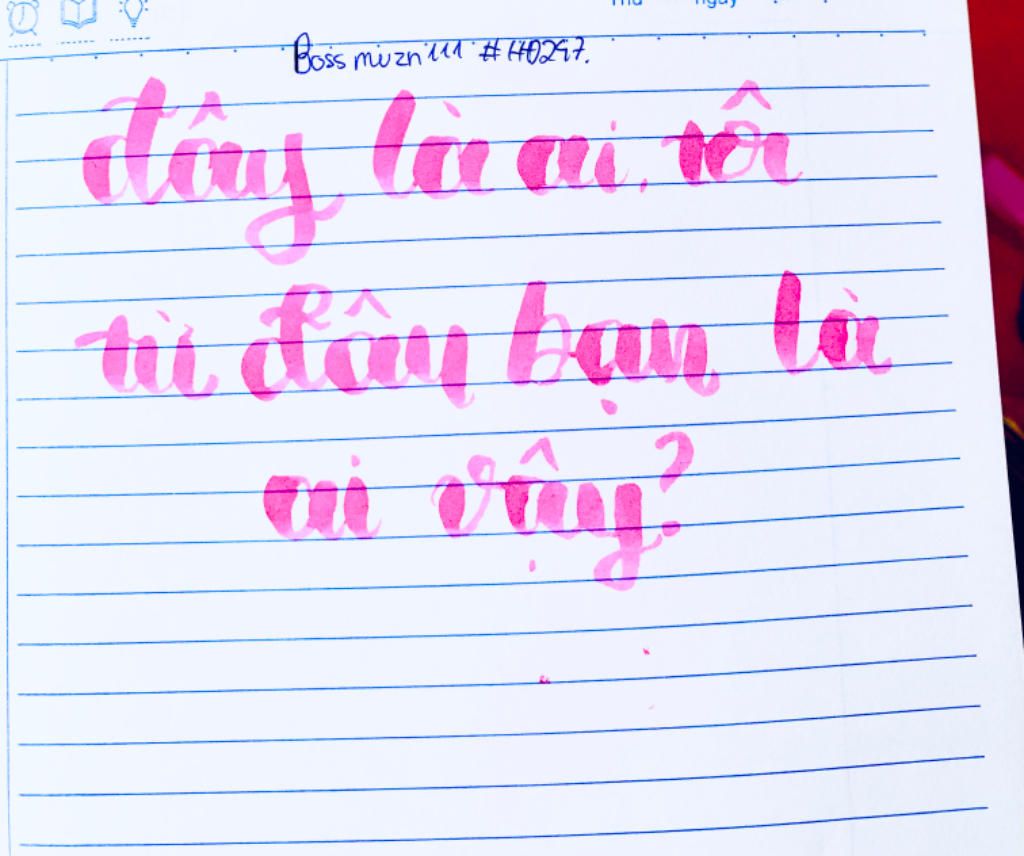 Thứ ngày
Boss muzn111 #H0297.
đây là ai, tôi
từ đâu bạn là
ai vậy?